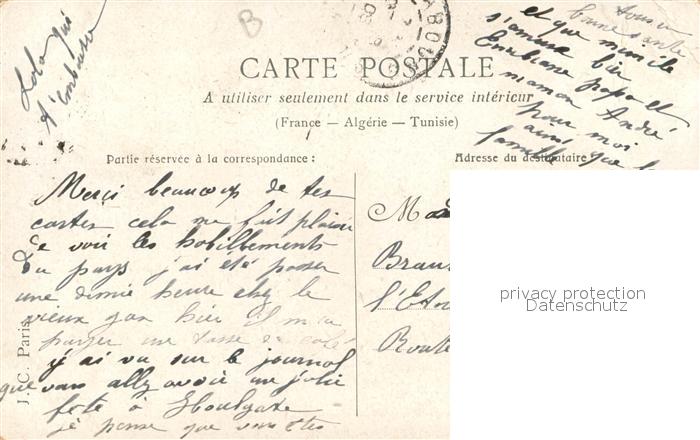 Lolo qui
t'embrasse
B
CARTE POSTALE
A utiliser seulement dans le service intérieur
(France — Algérie — Tunisie)
Partie réservée à la correspondance :
Adresse du destinataire
Merci beaucoup de tes
cartes cela me fait plaisir
de voir les habillements
du pays j'ai été passer
une demie heure chez le
vieux hier il m'a
payer une tasse de café
y ai vu sur le journal
que vous allez avoir une jolie
fete à Houlgate
je pense que vous êtes
tous en
bonne santé
et que mimile
s'amuse bien
Embrasse papa et
maman André
pour moi
ainsi que la
famille
J. C. Paris
Mad
Bran
l'Eto
Route
privacy protection
Datenschutz